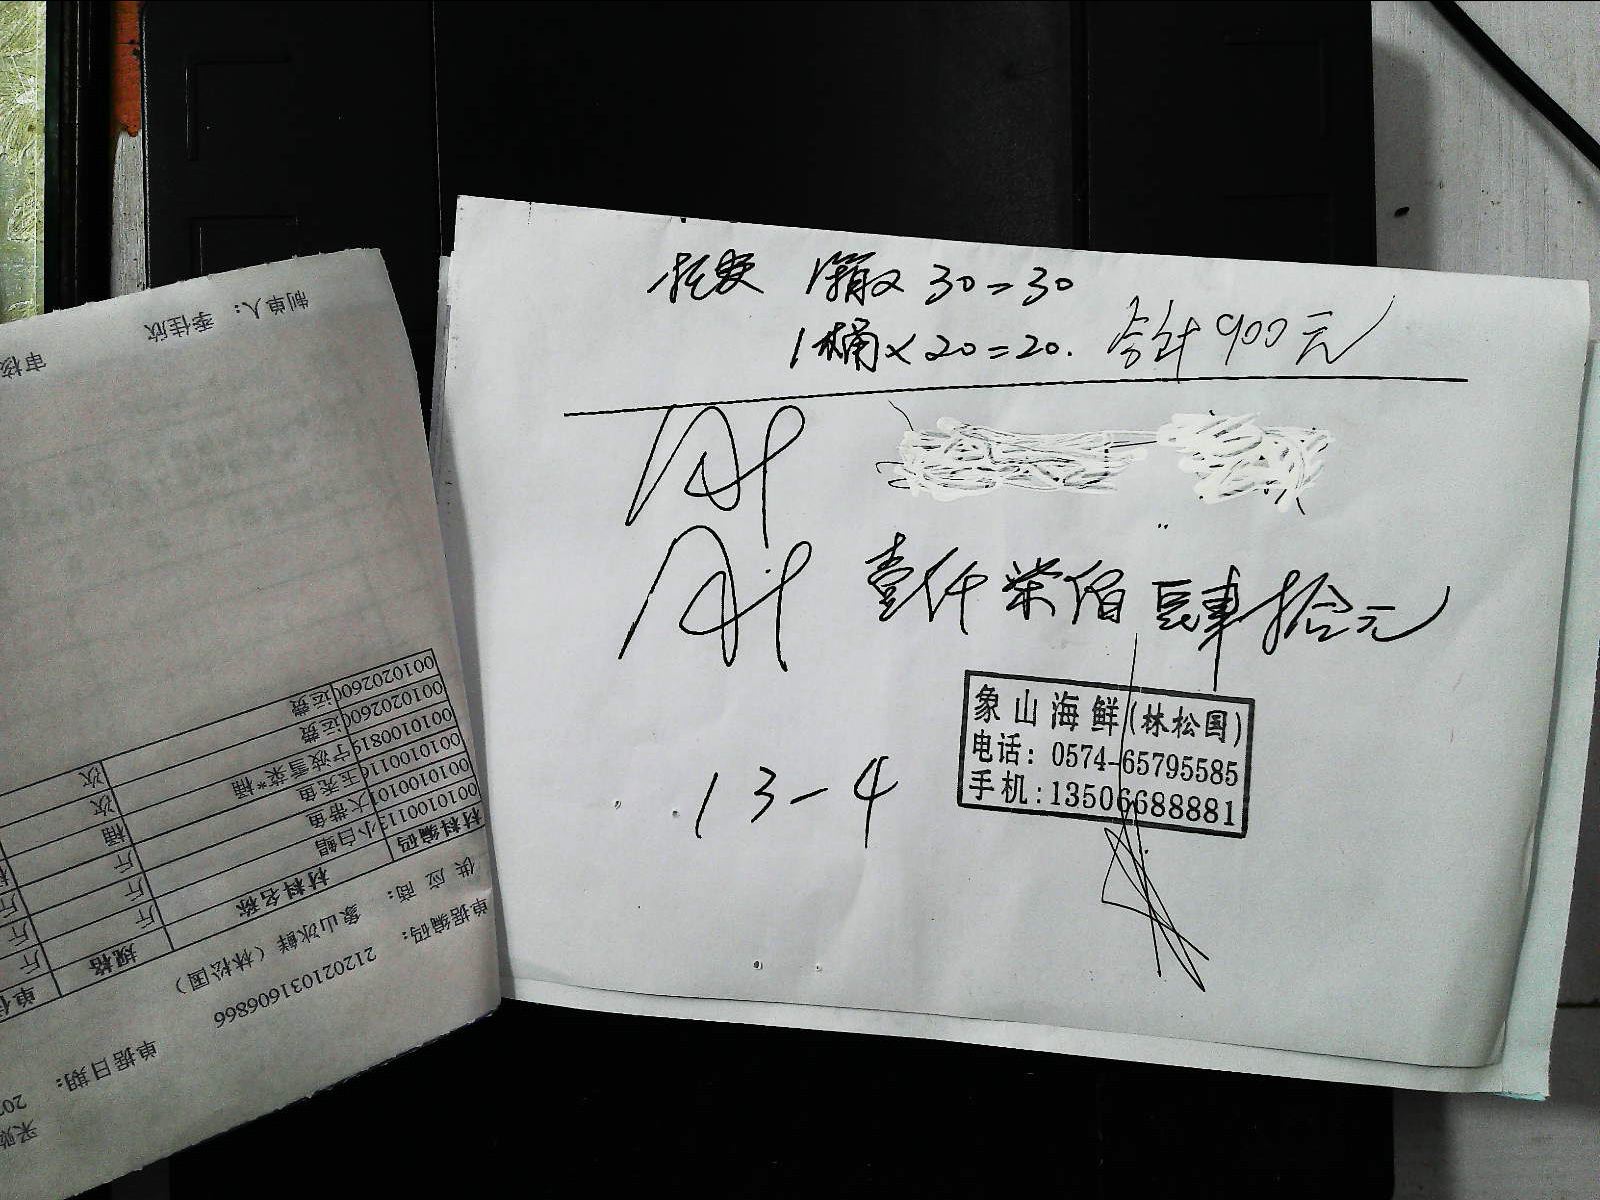 托费 1箱× 30=30
1桶×20=20. 合计900元
壹仟柒佰肆拾元
象山海鲜(林松国)
电话: 0574-65795585
手机:13506688881
13-4
采购
单据编码: 212021031606866 单据日期: 202
供应商: 象山冰鲜(林松国)
材料编码 材料名称 规格 单位
00101001 小白鲳 斤
00101001 大带鱼 斤
00101001 玉秃鱼 斤
001010081 宁波雪菜*桶 桶
001020260 运费 次
001020260 运费 次
制单人: 季佳欣 审核